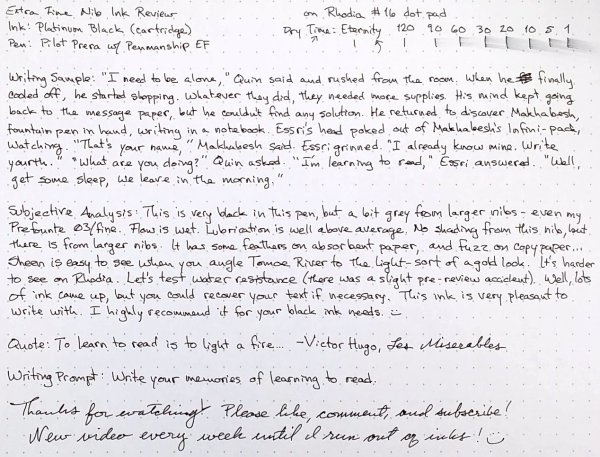 Extra Fine Nib Ink Review on Rhodia #16 dot pad
Ink: Platinum Black (cartridge) Dry Time: Eternity 120 90 60 30 20 10 5 1
Pen: Pilot Prera w/ Penmanship EF
Writing Sample: "I need to be alone," Quin said and rushed from the room. When he finally
cooled off, he started shopping. Whatever they did, they needed more supplies. His mind kept going
back to the message paper, but he couldn't find any solution. He returned to discover Makhabesh,
fountain pen in hand, writing in a notebook. Essri's head poked out of Makhabesh's Infini-pack,
watching. "That's your name," Makhabesh said. Essri grinned. "I already know mine. Write
yourth." "What are you doing?" Quin asked. "I'm learning to read," Essri answered. "Well,
get some sleep, we leave in the morning."
Subjective Analysis: This is very black in this pen, but a bit grey from larger nibs - even my
Prefounte 03/fine. Flow is wet. Lubrication is well above average. No shading from this nib, but
there is from larger nibs. It has some feathers on absorbent paper, and fuzz on copy paper...
Sheen is easy to see when you angle Tomoe River to the light - sort of a gold look. It's harder
to see on Rhodia. Let's test water resistance (there was a slight pre-review accident). Well, lots
of ink came up, but you could recover your text if necessary. This ink is very pleasant to
write with. I highly recommend it for your black ink needs.
Quote: To learn to read is to light a fire... -Victor Hugo, Les Miserables
Writing Prompt: Write your memories of learning to read.
Thanks for watching! Please like, comment, and subscribe!
New video every week until I run out of inks!